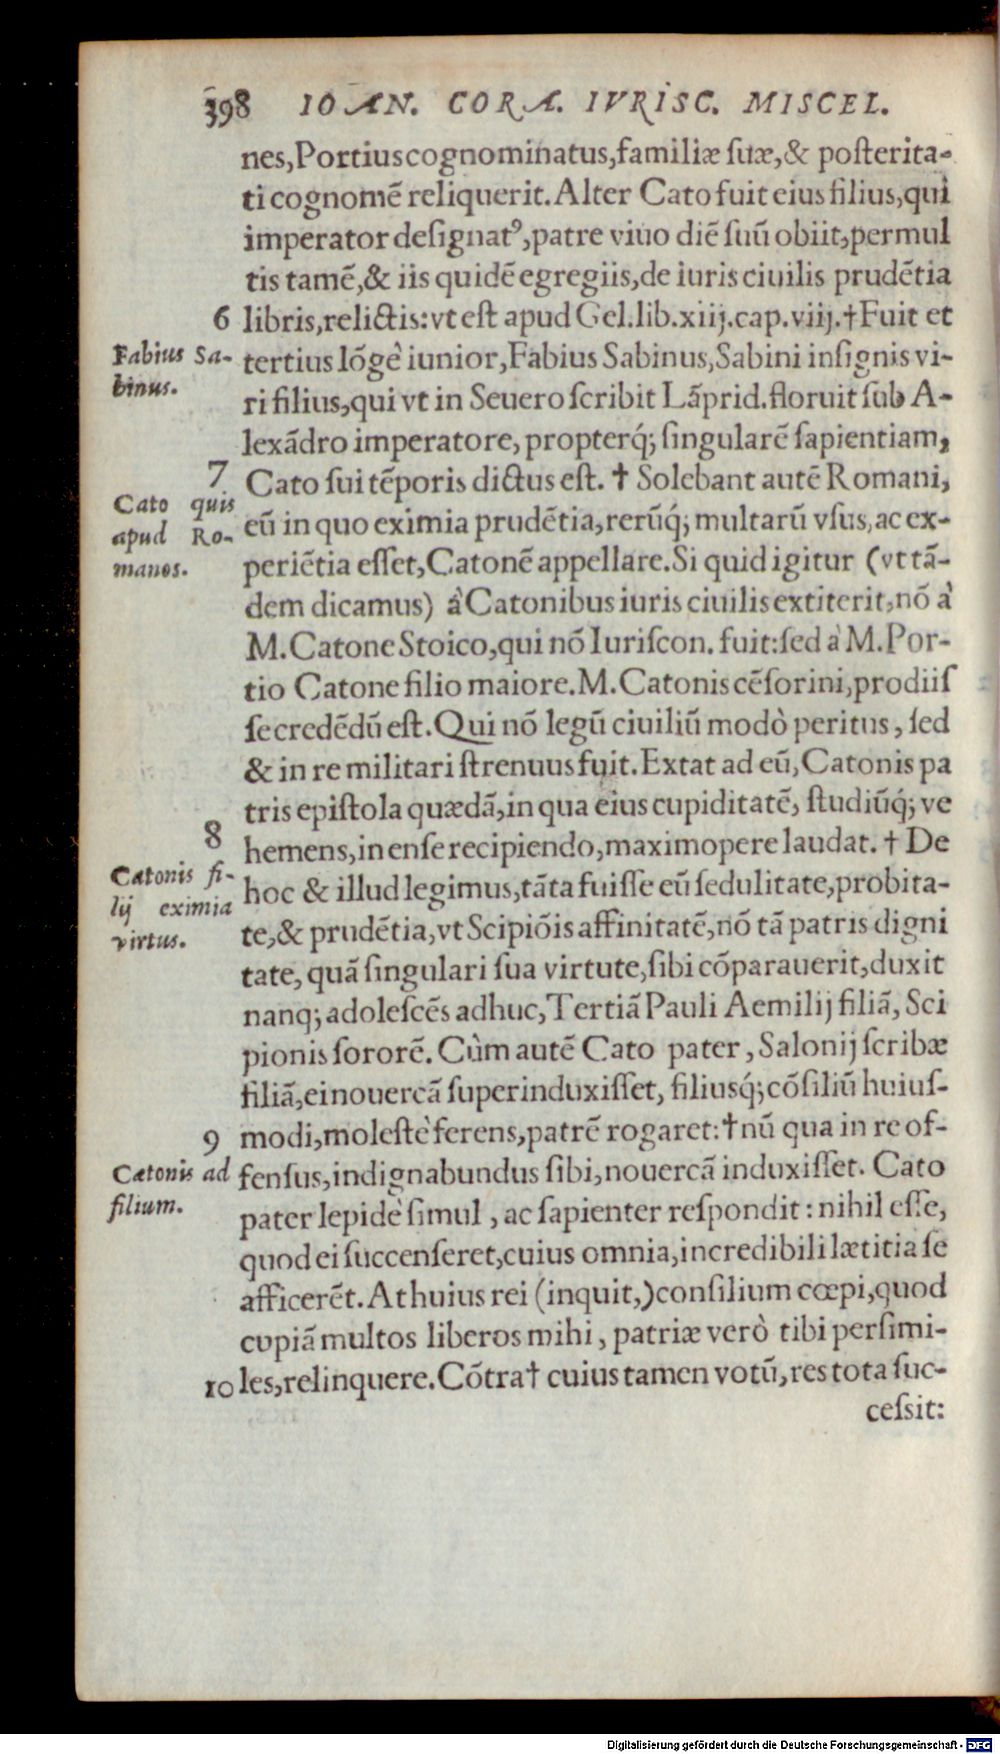 398 IOAN. CORA. IVRISC. MISCEL.
nes,Portius cognominatus,familiæ ſuæ,& poſterita-
ti cognomẽ reliquerit. Alter Cato fuit eius filius,qui
imperator deſignatꝰ,patre viuo diẽ ſuũ obiit,permul
tis tamẽ,& iis quidẽ egregiis,de iuris ciuilis prudẽtia
6 libris,relictis:vt eſt apud Gel.lib.xiij.cap.viij.†Fuit et
Fabius Sa-
binus.
tertius lõgè iunior,Fabius Sabinus,Sabini inſignis vi-
ri filius,qui vt in Seuero ſcribit Lãprid.floruit ſub A-
lexãdro imperatore, propterq́; ſingularẽ ſapientiam,
7 Cato ſui tẽporis dictus eſt. † Solebant autẽ Romani,
Cato quis
apud Ro-
manos.
eũ in quo eximia prudẽtia,rerũq́; multarũ vſus,ac ex-
periẽtia eſſet,Catonẽ appellare.Si quid igitur (vt tã-
dem dicamus) à Catonibus iuris ciuilis extiterit,nõ à
M.Catone Stoico,qui nõ Iuriſcon. fuit:ſed à M.Por-
tio Catone filio maiore.M.Catonis cẽſorini,prodiiſ
ſe credẽdũ eſt.Qui nõ legũ ciuiliũ modò peritus, ſed
& in re militari ſtrenuus fuit.Extat ad eũ,Catonis pa
tris epiſtola quædã,in qua eius cupiditatẽ, ſtudiũq́; ve
8 hemens,in enſe recipiendo,maximopere laudat. † De
Catonis fi-
lij eximia
virtus.
hoc & illud legimus,tãta fuiſſe eũ ſedulitate,probita-
te,& prudẽtia,vt Scipiõis affinitatẽ,nõ tã patris digni
tate, quã ſingulari ſua virtute,ſibi cõparauerit,duxit
nanq; adoleſcẽs adhuc,Tertiã Pauli Aemilij filiã, Sci
pionis ſororẽ. Cùm autẽ Cato pater, Salonij ſcribæ
filiã,ei nouercã ſuperinduxiſſet, filiusq́; cõſiliũ huiuſ-
9 modi,moleſtè ferens,patrẽ rogaret:†nũ qua in re of-
Catonis ad
filium.
fenſus,indignabundus ſibi,nouercã induxiſſet. Cato
pater lepidè ſimul, ac ſapienter reſpondit: nihil eſſe,
quod ei ſuccenſeret,cuius omnia,incredibili lætitia ſe
afficerẽt.At huius rei (inquit,)conſilium cœpi,quod
cupiã multos liberos mihi, patriæ verò tibi perſimi-
10 les,relinquere.Cõtra† cuius tamen votũ,res tota ſuc-
ceſsit:
Digitalisierung gefördert durch die Deutsche Forschungsgemeinschaft - DFG